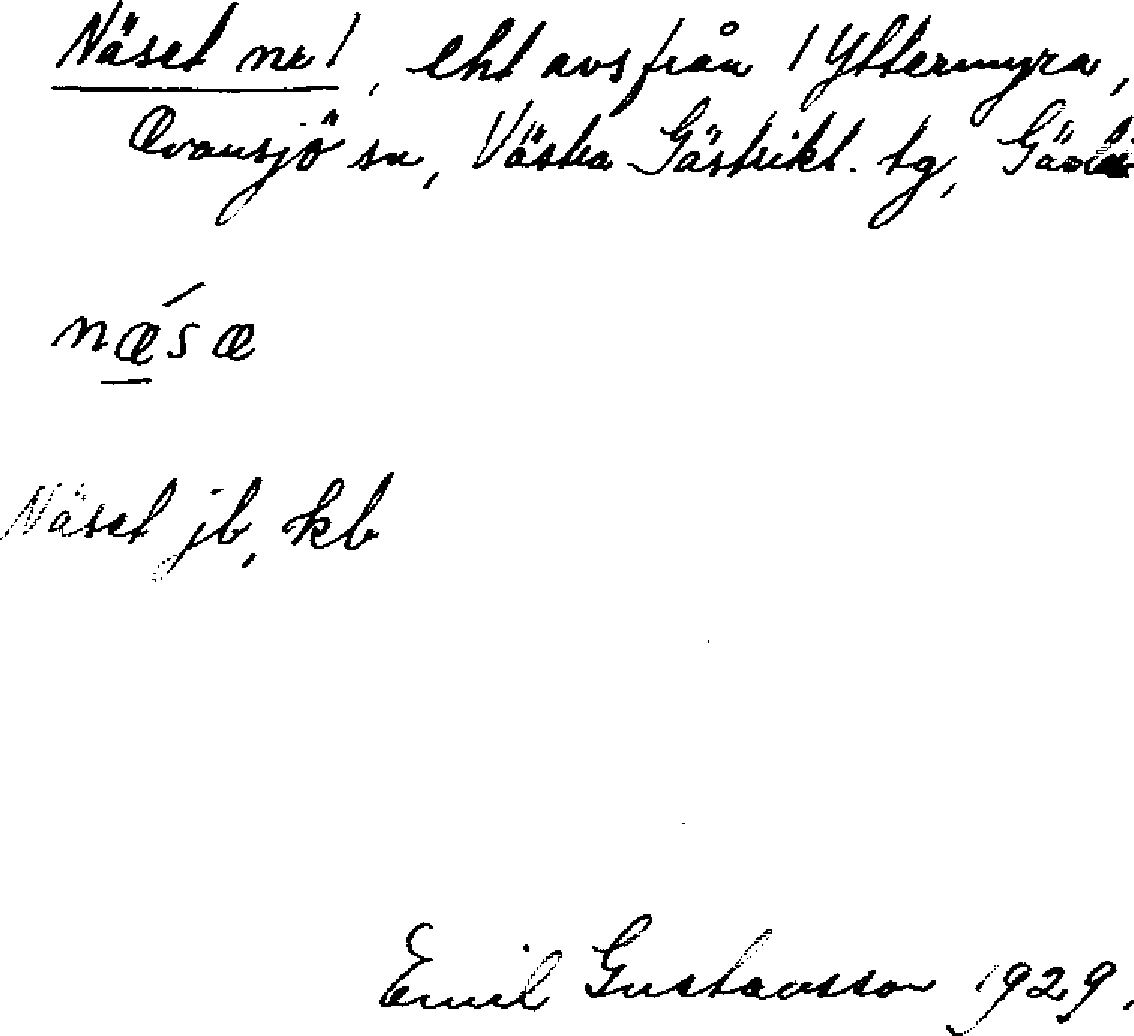 Näset nr 1, lht avs från 1 Yttermyra,
Ovansjö sn, Västra Gästrikl. tg,
næ´sæ
Näset jb, kb
Emil Gustavsson 1929.